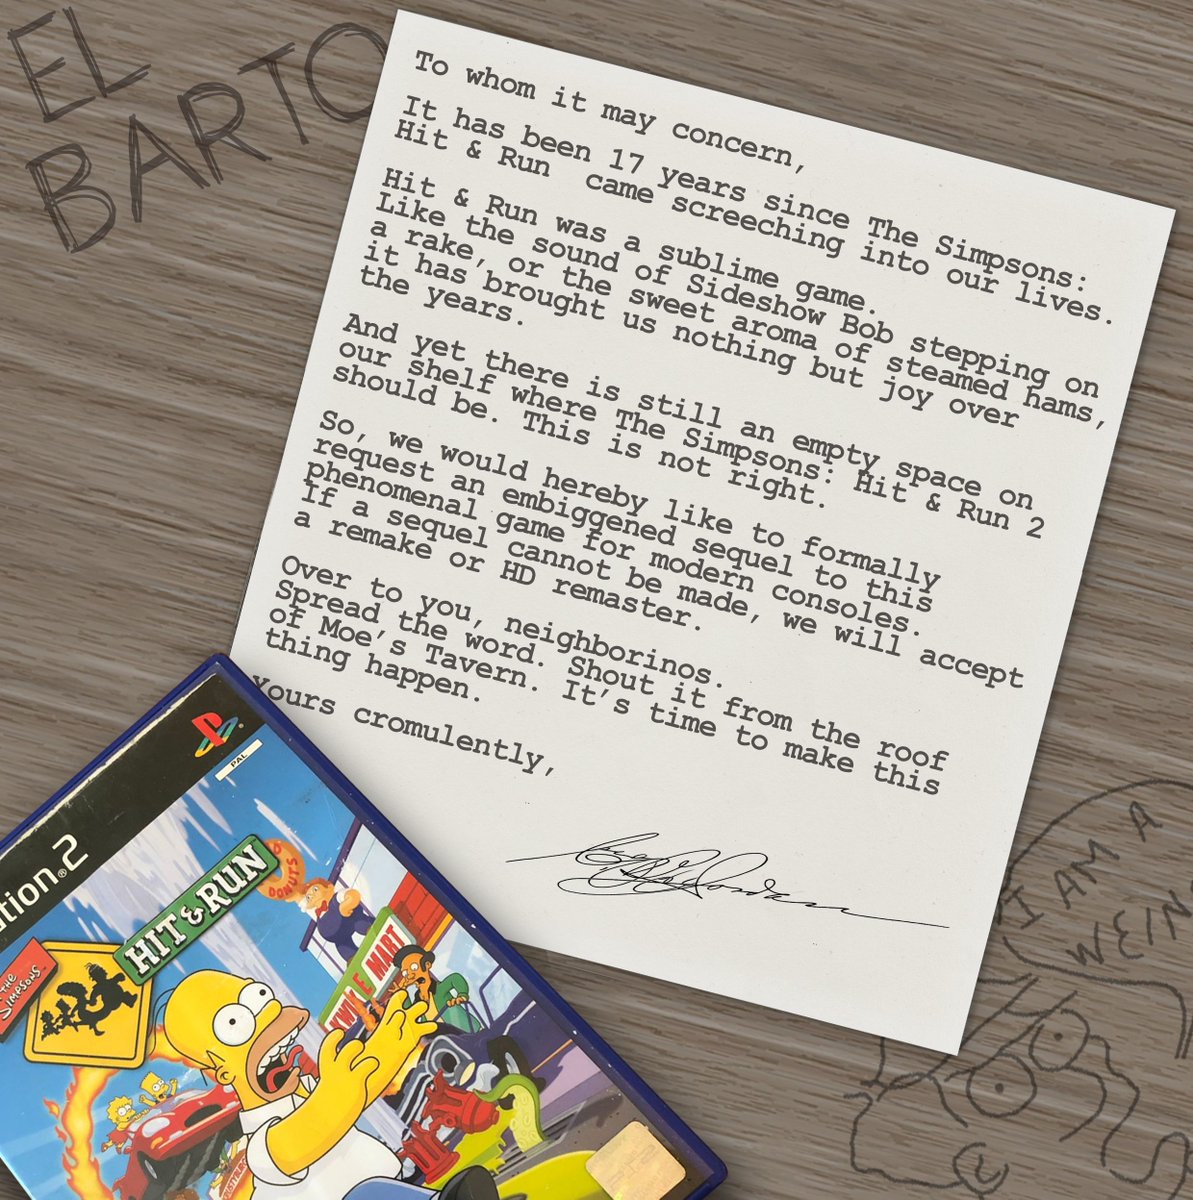 EL
BARTO
To whom it may concern,
It has been 17 years since The Simpsons:
Hit & Run came screeching into our lives.
Hit & Run was a sublime game.
Like the sound of Sideshow Bob stepping on
a rake, or the sweet aroma of steamed hams,
it has brought us nothing but joy over
the years.
And yet there is still an empty space on
our shelf where The Simpsons: Hit & Run 2
should be. This is not right.
So, we would hereby like to formally
request an embiggened sequel to this
phenomenal game for modern consoles.
If a sequel cannot be made, we will accept
a remake or HD remaster.
Over to you, neighborinos.
Spread the word. Shout it from the roof
of Moe's Tavern. It's time to make this
thing happen.
yours cromulently,
PAL
ation®2
THE
SIMPSONS
HIT & RUN
DONUTS
KWIK E MART
I AM A
WEIN